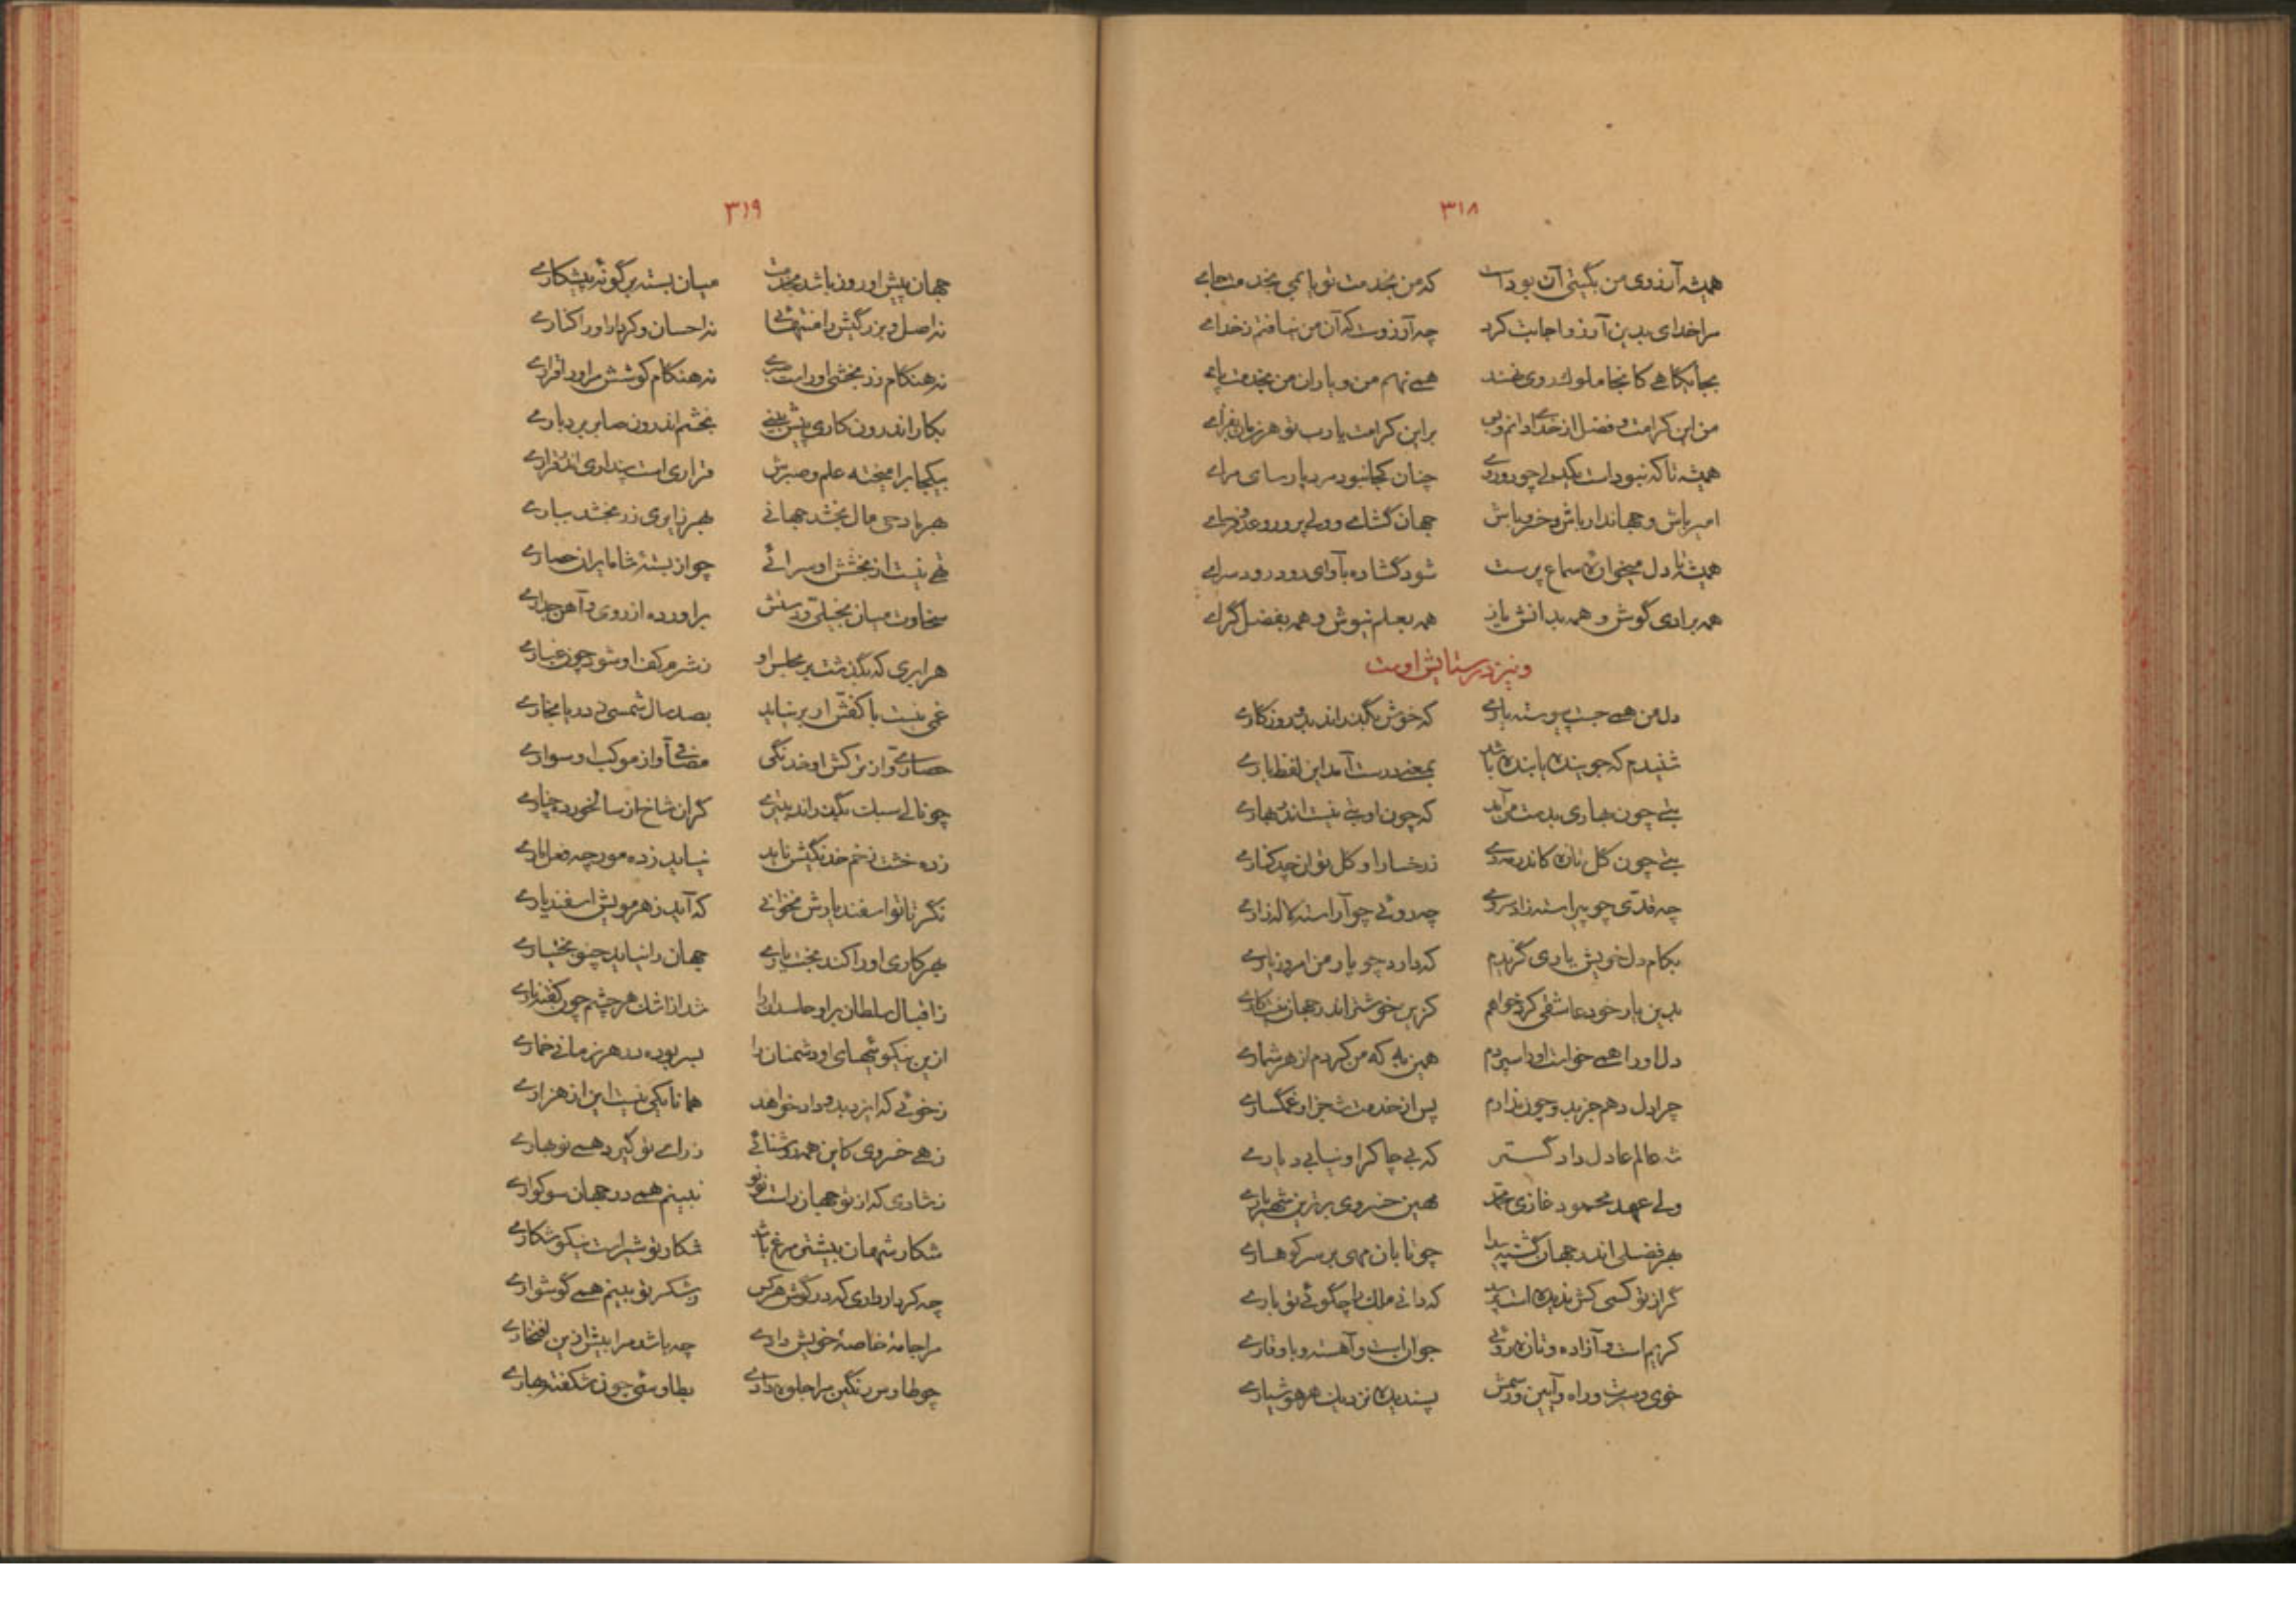 ۳۱۸
همیشه آرزوی من بگیتی آن بودست که من بخدمت تو پایمی بخدمت جای
مرا خدای بدین آرزو اجابت کرد چه آرزوست که آن من نیافتم ز خدای
بجایگاهی کانجا ملوک روی نهند همی نهم من و یاران من بخدمت پای
من این کرامت و فضل از خدای دانم و بس براین کرامت یارب تو هر زمان بفزای
همیشه تا که نبودست بگیتی چو چنان کجا نبود مرد پارسای مرای
امیر باش و جهاندار باش و خسرو باش جهان گشای و ولی پرور و عدو فرسای
همیشه تا دل میخواره سماع پرست شود گشاده بآوای رود رود سرای
همه برادی گوش و همه بدانش یاز همه بعلم نیوش و همه بفضل گرای
و نیز در ستایش اوست
دل من همی جست پیوسته یاری که خوش بگذراند بدو روزگاری
شنیدم که جوینده یابنده باشد بمعنی درست آمد این لفظ باری
بتی چون بهاری بدست من آمد که چون او بتی نیست اندر بهاری
بتی چون گل تازه کاندر مه دی ز رخسار او گل توان چید کناری
چه قدی چو پیراسته زاد سروی چه روئی چو آراسته لاله زاری
بکام دل خویش یاری گزیدم که دارد چو یار من امروز یاری
بدین یار خود عاشقی کرد خواهم کزین خوشتر اندر جهان نیست کاری
دل اورا همی خواست اورا سپردم همین به که من کردم از هر شماری
چرا دل دهم جز بدو چون ندارم پس از خدمت شه جز او غمگساری
شه عالم عادل دادگستر که بی چاکر او نیابی دیاری
ولی عهد محمود غازی محمد مهین خسروی برترین شهریاری
بهر فضلی اندر جهان گشته پیدا چو تابان مهی بر سر کوهساری
گر از تو کسی کش ندیده است پرسد که دانی ملک را چگوئی تو باری
کریم است و آزاده و تازه روئی جوان است و آهسته و با وقاری
خوی و سیرت و راه و آیین و رسمش پسندیده نزدیک هر هوشیاری
۳۱۹
جهان پیش او روز باشد بخدمت میان بسته بر گونه پیشکاری
نه اصل و بزرگیش را منتهائی نه احسان و کردار اورا کناری
نه هنگام زر بخشی اوراست نه هنگام کوشش مر اورا قراری
بکار اندرون کاری پیش بینی بخشم اندرون صابر بردباری
بیکجا برآمیخته علم و صبرش قراری است پنداری اندر قراری
بهر بادی مال بخشد جهانی بهر زایری زر بخشد بباری
تهی نیست از بخشش او سرائی چو از پشته شاه ایران حصاری
سخاوت میان بخیلی و دستش برآورده از روی و آهن جداری
هر ابری که بگذشت بر مجلس او ز شرم کف او شود چون غباری
غمی نیست با کفش ار بر نیاید بصد سال شمسی ز دریا بخاری
حصاری و از ترکش او خدنگی مصافی و از موکب او سواری
چو نالی سبک بگذراند بتیری گران شاخ از سالخورده چناری
زده خشت زخم خدنگیش تابد نیاید زده مورچه فعل ماری
نگر تا تو اسفندیارش نخوانی که آید ز هر مویش اسفندیاری
بهر کاری اورا کند بخت یاری جهان را نیاید چنو بختیاری
ز اقبال سلطان مر او حاسدان را شد از اشک هر چشم چون کفته ناری
ازین نیکوئیهای او دشمنان را بسر بوده در هر زمانی خماری
ز خوئی که ایزد بدو داد خواهد همانا یکی نیست این از هزاری
زهی خسروی کاین همه روشنائی ز رای تو گیرد همی نوبهاری
ز شادی که از تو جهان راست بر تو نبینم همی در جهان سوکواری
شکار شهان بیشتر مرغ باشد شکار تو شیرست نیکو شکاری
چه کردار داری که در گوش هر کس ز شکر تو بینم همی گوشواری
مرا جامه خاصه خویش دادی چه باشد مرا بیش ازین افتخاری
چو طاوس رنگین مرا جلوه دادی بطاوسئی چون شکفته بهاری